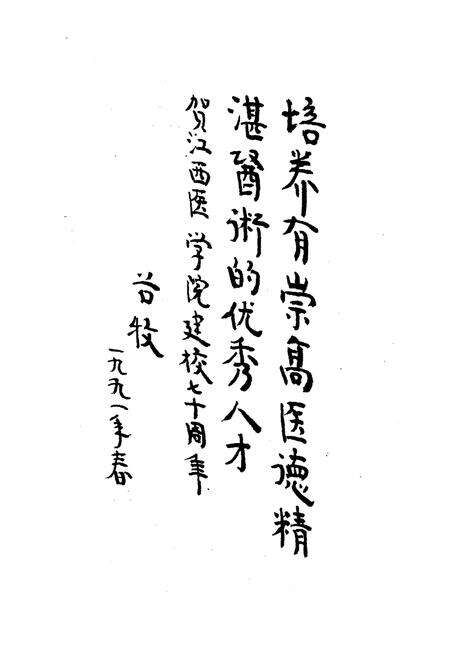 培养有崇高医德精
湛醫術的优秀人才
贺江西医学院建校七十周年
谷牧
一九九一年春